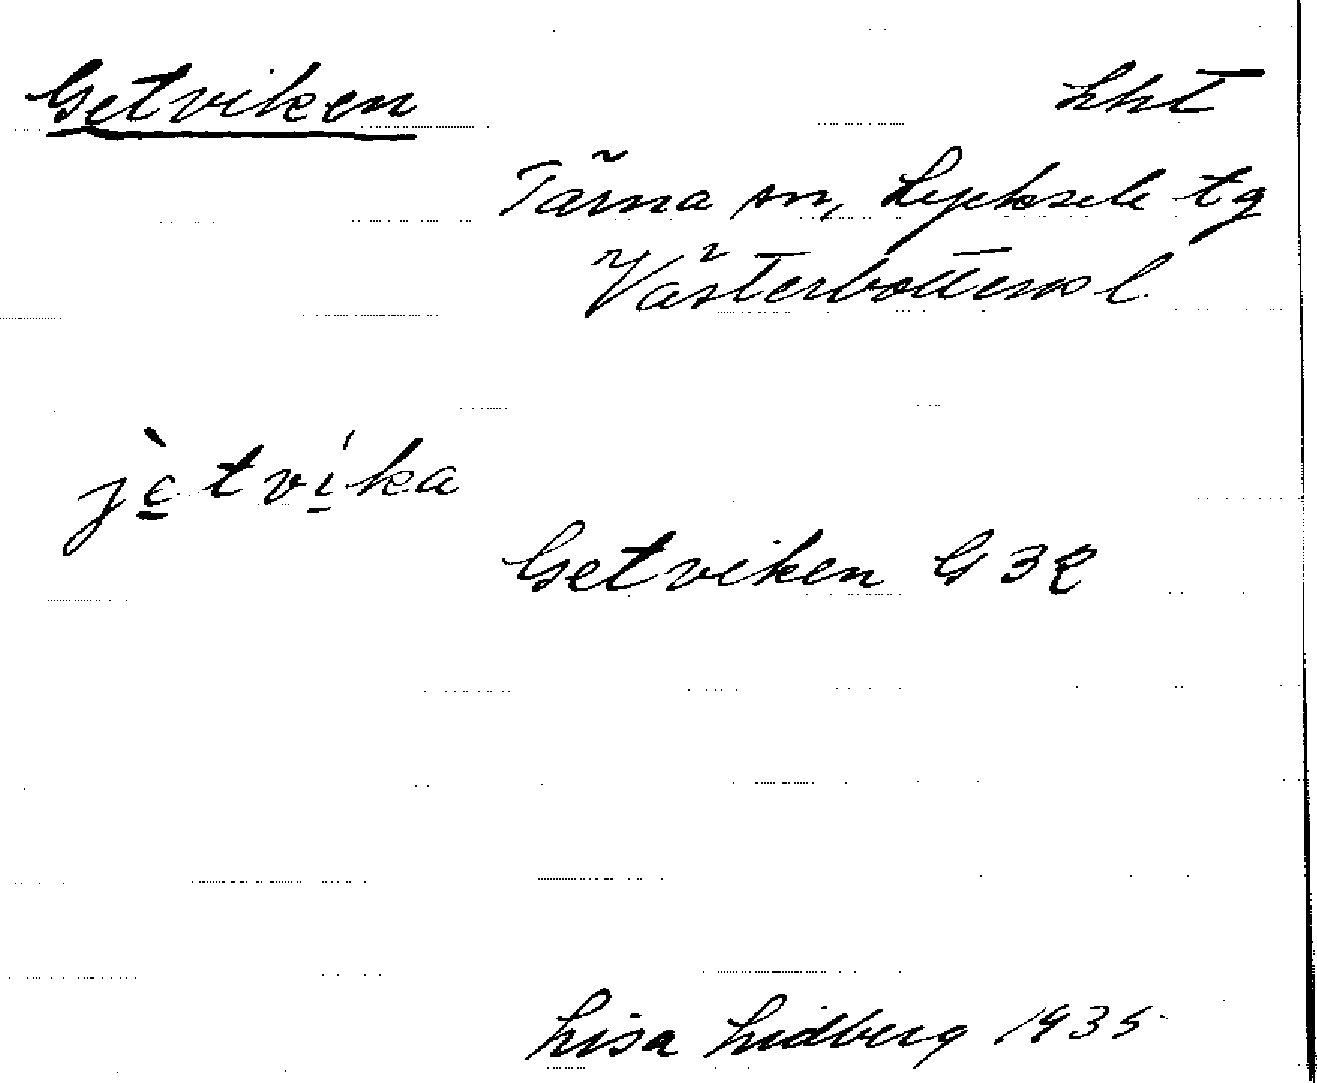 Getviken lht
Tärna sn, Lycksele tg
Västerbottens l.
jè̲tví̲ka
Getviken G 32
Lisa Lidberg 1935